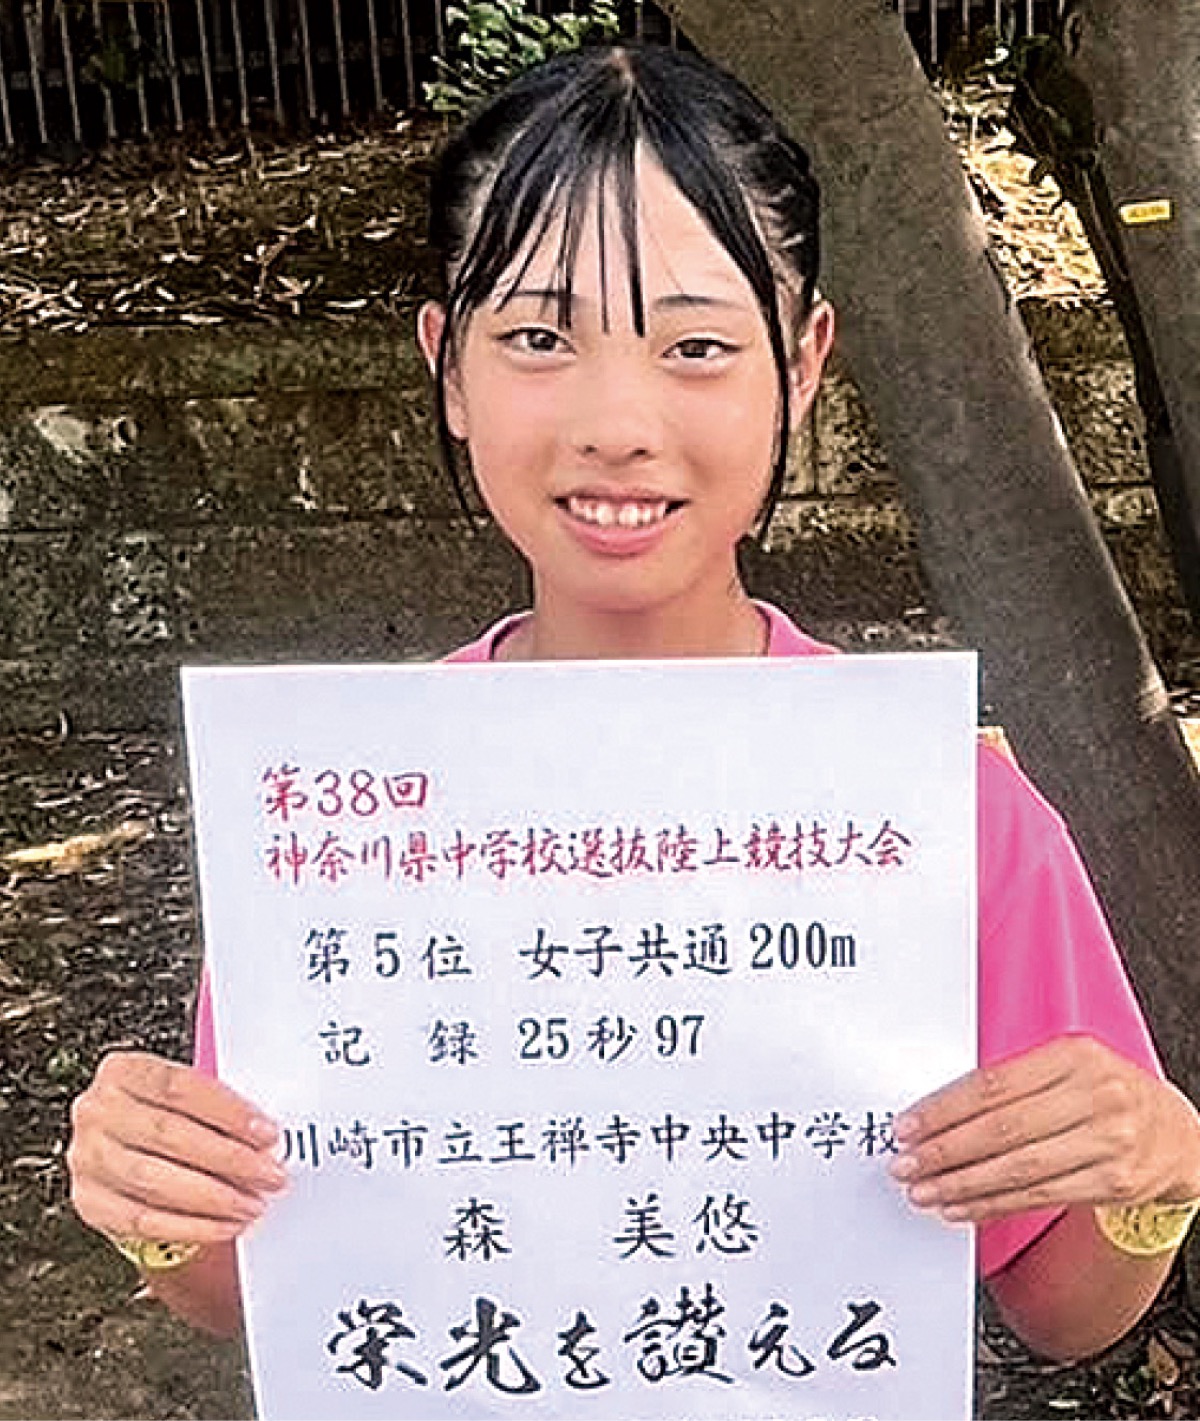 第38回
神奈川県中学校選抜陸上競技大会
第5位 女子共通200m
記 録 25秒97
川崎市立王禅寺中央中学校
森 美悠
栄光を讃える